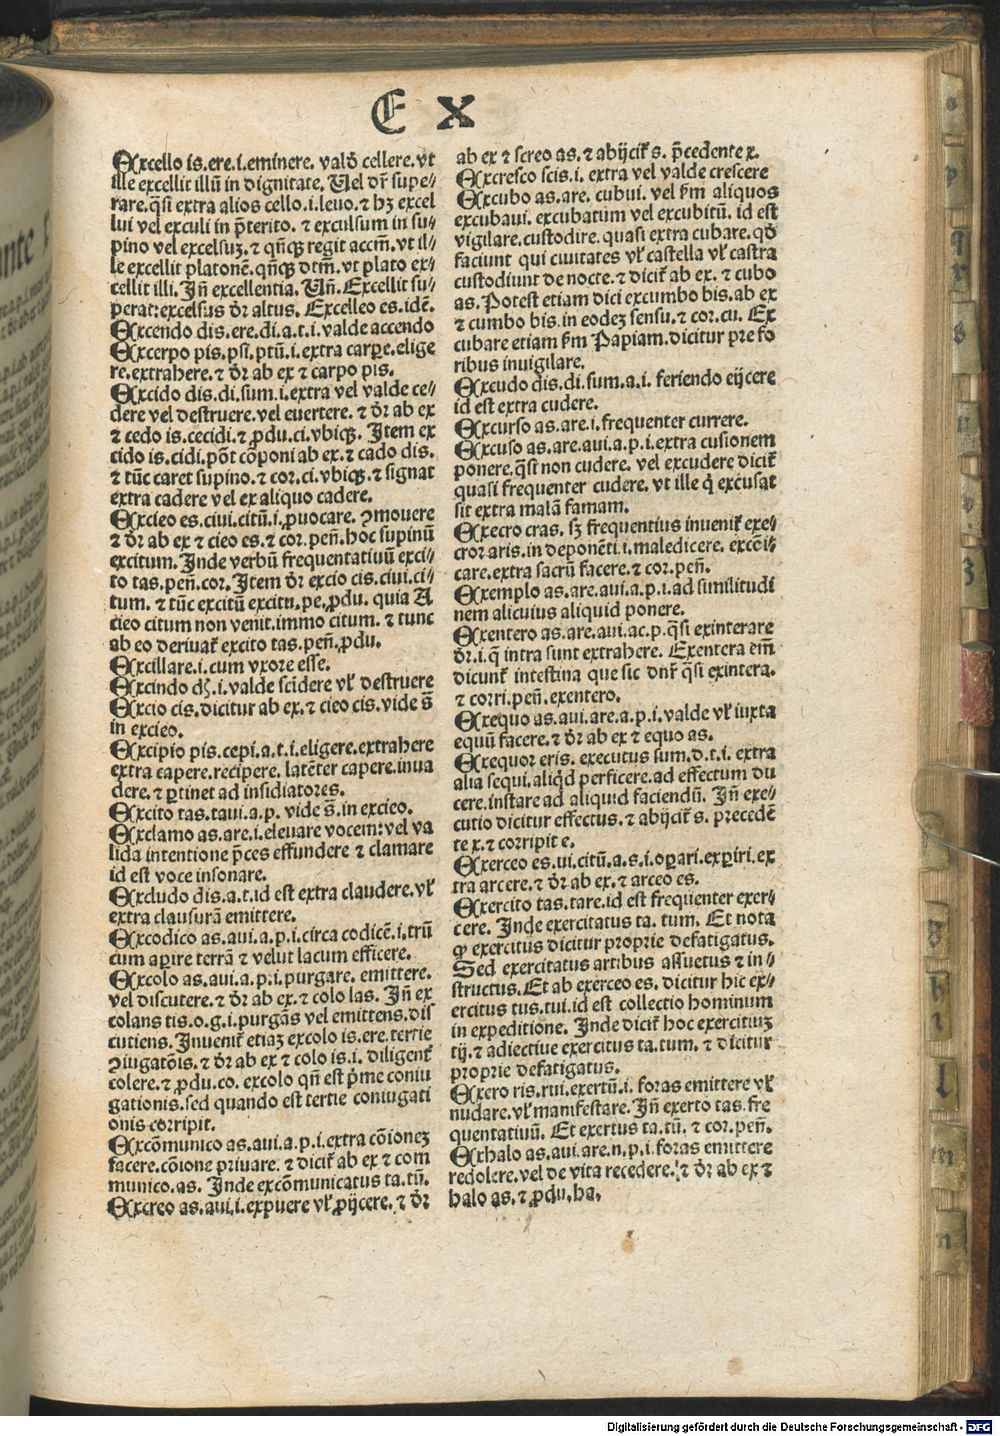 E X
Excello is.ere.i.eminere. valđ cellere.vt
ille excellit illū in dignitate. Uel dr̄ supe⸗
rare.q̄si extra alios cello.i.leuo.⁊ hꝫ excel
lui vel exculi in p̄terito. ⁊ exculsum in su⸗
pino vel excelsuꝫ.⁊ qn̄qꝫ regit accm̄.vt il⸗
le excellit platonē.qn̄qꝫ dtm̄.vt plato ex⸗
cellit illi. Jn̄ excellentia. Un̄. Excellit su⸗
perat:excelsus dr̄ altus. Excelleo es.idē.
Excendo dis.ere.di.a.t.i.valde accendo
Excerpo pis.psi.ptū.i.extra carꝑe.elige
re.extrahere.⁊ dr̄ ab ex ⁊ carpo pis.
Excido dis.di.sum.i.extra vel valde ce⸗
dere vel destruere.vel euertere. ⁊ dr̄ ab ex
⁊ cedo is.cecidi.⁊ ꝓdu.ci.vbiqꝫ. Jtem ex
cido is.cidi.pōt cōponi ab ex.⁊ cado dis.
⁊ tūc caret supino.⁊ cor.ci.vbiqꝫ.⁊ signat
extra cadere vel ex aliquo cadere.
Excieo es.ciui.citū.i.ꝓuocare. ꝯmouere
⁊ dr̄ ab ex ⁊ cieo es.⁊ cor.pen̄.hoc supinū
excitum. Jnde verbū frequentatiuū exci⸗
to tas.pen̄.cor. Jtem dr̄ excio cis.ciui.ci⸗
tum. ⁊ tūc excitū excitu.pe.ꝓdu. quia A
cieo citum non venit.immo citum. ⁊ tunc
ab eo deriuat̄ excito tas.pen̄.ꝓdu.
Excillare.i.cum vxore esse.
Excindo dꝫ.i.valde scidere vl̄ destruere
Excio cis.dicitur ab ex.⁊ cieo cis.vide s̄
in excieo.
Excipio pis.cepi.a.t.i.eligere.extrahere
extra capere.recipere. latēter capere.inua
dere.⁊ ꝑtinet ad insidiatores.
Excito tas.taui.a.p. vide s̄.in excieo.
Exclamo as.are.i.eleuare vocem:vel va
lida intentione p̄ces effundere ⁊ clamare
id est voce insonare.
Excludo dis.a.t.id est extra claudere.vl̄
extra clausurā emittere.
Excodico as.aui.a.p.i.circa codicē.i.trū
cum aꝑire terrā ⁊ velut lacum efficere.
Excolo as.aui.a.p.i.purgare. emittere.
vel discutere.⁊ dr̄ ab ex.⁊ colo las. Jn̄ ex
colans tis.o.g.i.purgās vel emittens.dis
cutiens. Jnuenit̄ etiaꝫ excolo is.ere.tertie
ꝯiugatōis.⁊ dr̄ ab ex ⁊ colo is.i. diligent̄
colere.⁊ ꝓdu.co. excolo qn̄ est p̄me coniu
gationis.sed quando est tertie coniugati
onis corripit.
Excōmunico as.aui.a.p.i.extra cōionez
facere.cōione priuare.⁊ dicit̄ ab ex ⁊ com
munico.as. Jnde excōmunicatus ta.tū.
Excreo as.aui.i.expuere vl̄ ꝓijcere.⁊ dr̄
ab ex ⁊ screo as.⁊ abijcit̄ s. p̄cedente x.
Excresco scis.i. extra vel valde crescere
Excubo as.are. cubui. vel ẜm aliquos
excubaui. excubatum vel excubitū. id est
vigilare.custodire.quasi extra cubare.qđ
faciunt qui ciuitates vl̄ castella vl̄ castra
custodiunt de nocte.⁊ dicit̄ ab ex. ⁊ cubo
as. Potest etiam dici excumbo bis.ab ex
⁊ cumbo bis.in eodeꝫ sensu.⁊ cor.cu. Ex
cubare etiam ẜm Papiam.dicitur pre fo
ribus inuigilare.
Excudo dis.di.sum.a.i. feriendo eijcere
id est extra cudere.
Excurso as.are.i.frequenter currere.
Excuso as.are.aui.a.p.i.extra cusionem
ponere.q̄si non cudere. vel excudere dicit̄
quasi frequenter cudere. vt ille q̇ excusat
sit extra malā famam.
Execro cras. sꝫ frequentius inuenit̄ exe⸗
cror aris.in deponēti.i.maledicere. excōi⸗
care.extra sacrū facere.⁊ cor.pen̄.
Exemplo as.are.aui.a.p.i.ad similitudi
nem alicuius aliquid ponere.
Exentero as.are.aui.ac.p.q̄si exinterare
dr̄.i.q̄ intra sunt extrahere. Exentera em̄
dicunt̄ intestina que sic dn̄r q̄si exintera.
⁊ corri.pen̄.exentero.
Exequo as.aui.are.a.p.i.valde vl̄ iuxta
equū facere.⁊ dr̄ ab ex ⁊ equo as.
Exequor eris. executus sum.d.t.i. extra
alia sequi.aliqd perficere.ad effectum du
cere.instare ad aliquid faciendū. Jn̄ exe⸗
cutio dicitur effectus.⁊ abijcit̄ s. precedē
te x.⁊ corripit e.
Exerceo es.ui.citū.a.s.i.oꝑari.exꝑiri.ex
tra arcere.⁊ dr̄ ab ex.⁊ arceo es.
Exercito tas.tare.id est frequenter exer⸗
cere. Jnde exercitatus ta. tum. Et nota
ꝙ exercitus dicitur proprie defatigatus.
Sed exercitatus artibus assuetus ⁊ in⸗
structus. Et ab exerceo es. dicitur hic ex⸗
ercitus tus.tui.id est collectio hominum
in expeditione. Jnde dicit̄ hoc exercituꝫ
tij.⁊ adiectiue exercitus ta.tum. ⁊ dicitur
proprie defatigatus.
Exero ris.rui.exertū.i. foras emittere vl̄
nudare.vl̄ manifestare. Jn̄ exerto tas.fre
quentatiuū. Et exertus ta.tū. ⁊ cor.pen̄.
Exhalo as.aui.are.n.p.i.foras emittere
redolere.vel de vita recedere. ⁊ dr̄ ab ex ⁊
halo as.⁊ ꝓdu.ha.
Digitalisierung gefördert durch die Deutsche Forschungsgemeinschaft - DFG